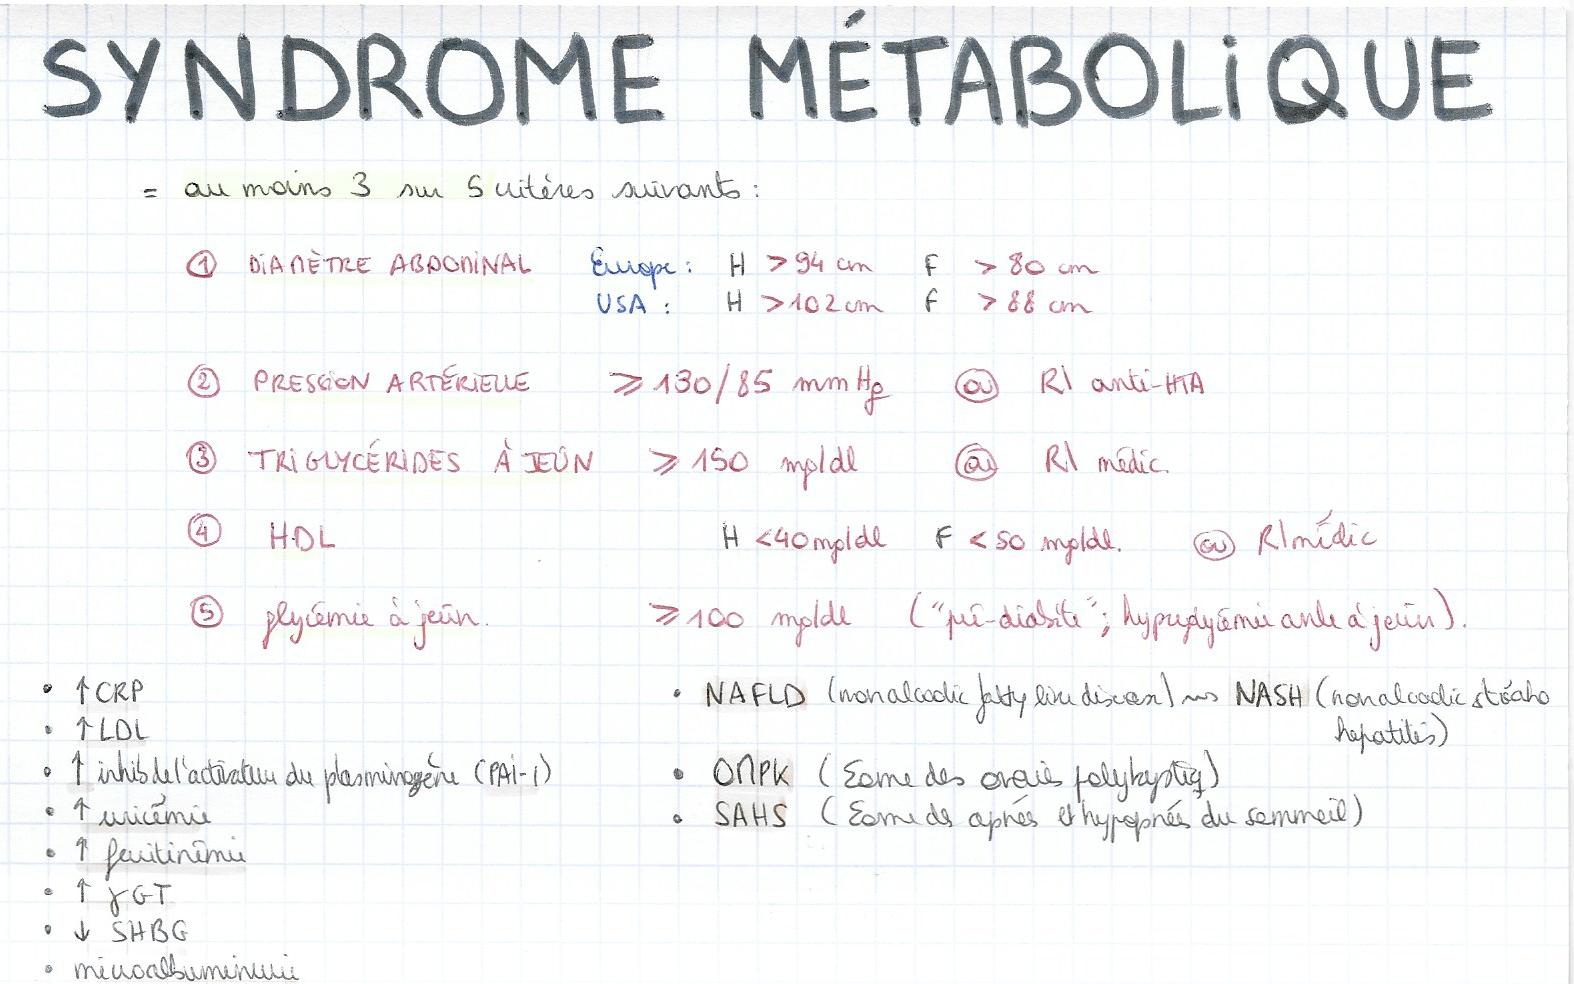 SYNDROME MÉTABOLIQUE
= au moins 3 sur 5 critères suivants :
① DIAMÈTRE ABDOMINAL Europe : H > 94 cm F > 80 cm
USA : H > 102 cm F > 88 cm
② PRESSION ARTÉRIELLE ≥ 130/85 mmHg ou R\ anti-HTA
③ TRIGLYCÉRIDES À JEÛN ≥ 150 mg/dl ou R\ médic.
④ HDL H < 40 mg/dl F < 50 mg/dl. ou R\ médic
⑤ glycémie à jeûn. ≥ 100 mg/dl ("pré-diabète" ; hyperglycémie à jeûn).
• ↑ CRP
• ↑ LDL
• ↑ inhib de l'activateur du plasminogène (PAI-1)
• ↑ uricémie
• ↑ ferritinémie
• ↑ γGT
• ↓ SHBG
• microalbuminurie
• NAFLD (nonalcoolic fatty liver disease) ⇝ NASH (nonalcoolic stéato
hepatitis)
• OMPK (des ovaires polykystiq)
• SAHS (des apnées et hypopnées du sommeil)